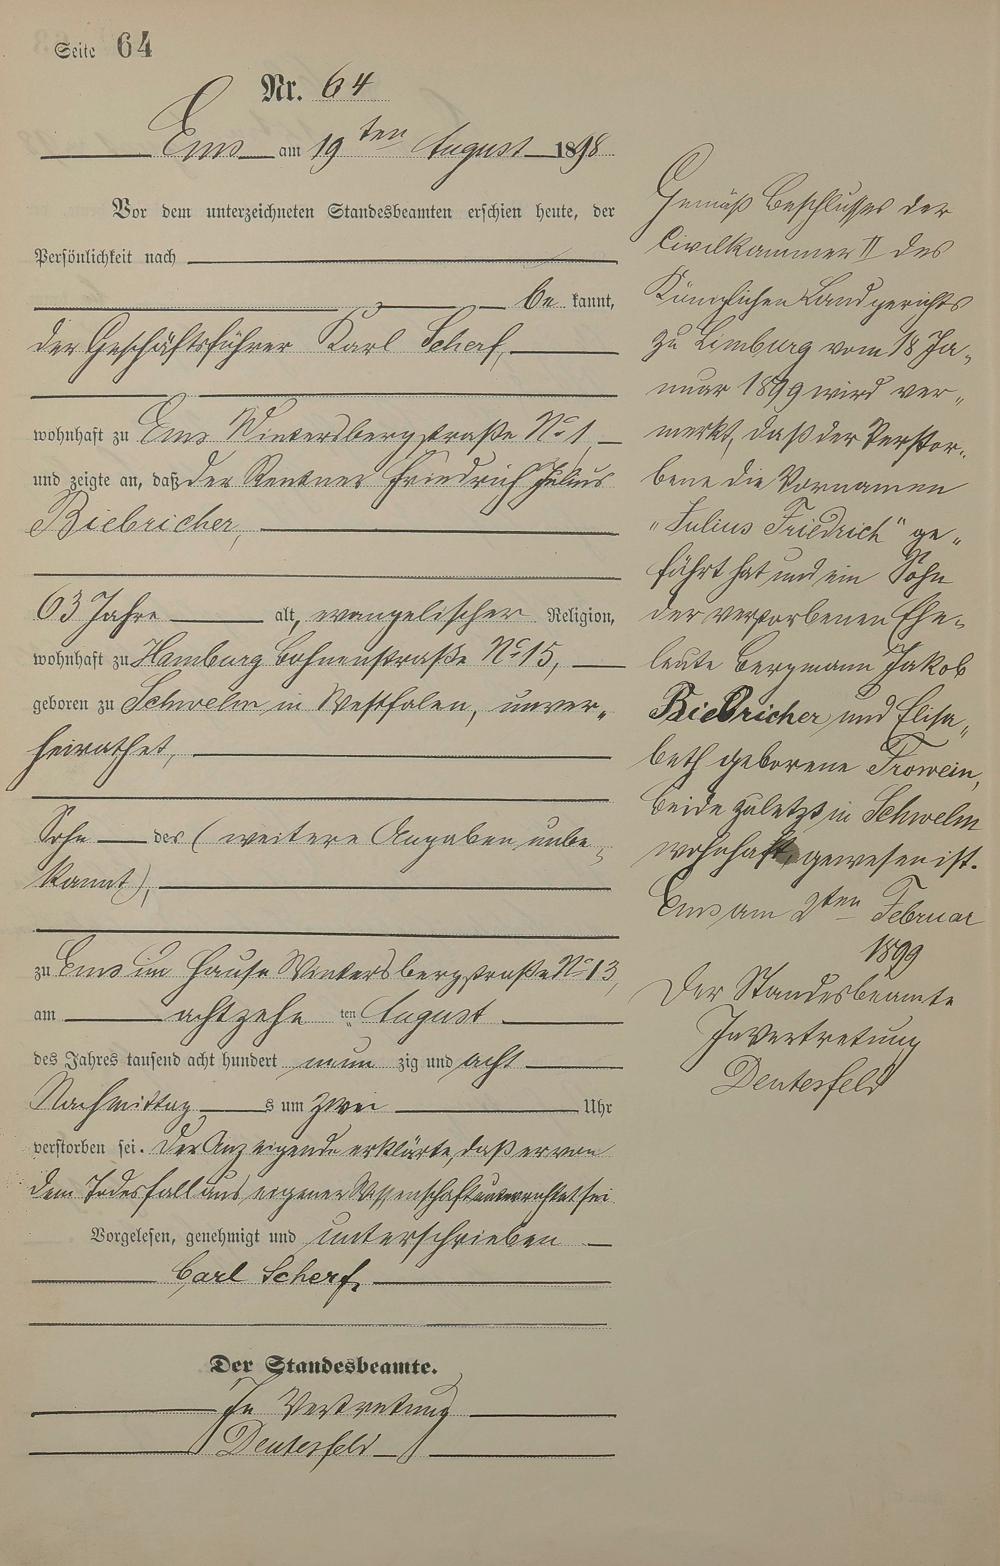 Seite 64
Nr. 64
Ems am 19ten August 1898
Vor dem unterzeichneten Standesbeamten erschien heute, der
Persönlichkeit nach
be kannt,
der Geschäftsführer Karl Scherf,
wohnhaft zu Ems Wintersbergstraße No 1
und zeigte an, daß der Rentner Friedrich Julius
Biebricher,
63 Jahre alt, evangelischer Religion,
wohnhaft zu Hamburg Bohnenstraße No 15,
geboren zu Schwelm in Westfalen, unver„
heirathet,
Sohn des (weitere Angaben unbe„
kannt),
zu Ems im Hause Wintersbergstraße No 13,
am achtzehn ten August
des Jahres tausend acht hundert neun zig und acht
Nachmittag s um zwei Uhr
verstorben sei. Der Anzeigende erklärte, daß er von
dem Todesfall aus eigener Wissenschaft unterrichtet sei
Vorgelesen, genehmigt und unterschrieben
Carl Scherf,
Der Standesbeamte.
In Vertretung
Deutesfeld
Gemäß Beschlusses der
Civilkammer II des
Königlichen Landgerichts
zu Limburg vom 18 Ja„
nuar 1899 wird ver„
merkt, daß der Verstor„
bene die Vornamen
„Julius Friedrich“ ge„
führt hat und ein Sohn
der verstorbenen Ehe„
leute Bergmann Jakob
Biebricher und Elisa„
beth geborene Trowein,
beide zuletzt in Schwelm
wohnhaft, gewesen ist.
Ems am 2ten Februar
1899
Der Standesbeamte
In Vertretung
Deutesfeld